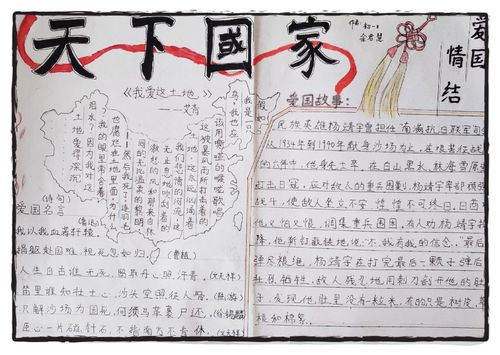 天下國家
爱国
情结
《我爱这土地》
——艾青
假如
我是一只
鸟，我也应
该用嘶哑的喉咙歌唱
这被暴风雨所打击着的
土地，这永远汹涌着
我们的悲愤的河流，这
无止息地吹刮着的
激怒的风，和那来自林
间的无比温柔的黎明
——然后我死了，连羽毛
也腐烂在土地里面。为什么
我的眼里常含着
泪水？因为我对这
土地爱得深沉
诗句
爱国名言
我以我血荐轩辕
捐躯赴国难，视死忽如归。（曹植）
人生自古谁无死，留取丹心照汗青。（文天祥）
笛里谁知壮士心，沙头空照征人骨。（陆游）
只解沙场为国死，何须马革裹尸还。（徐锡麟）
臣心一片磁针石，不指南方不肯休。（文天祥）
爱国故事：
民族英雄杨靖宇曾担任南满抗日联军司令
从1934年到1940年献身沙场为止，在艰苦征战
的六年中，他身先士卒，在白山黑水、林海雪原
打击日寇，应对敌人的重兵围剿，杨靖宇率部顽强
战斗，使敌人坐立不安，惶惶不可终日，日西
他又怕又恨，调集重兵围困，有人劝杨靖宇投
降，他斩钉截铁地说"不，我有我的信念。"最后
弹尽粮绝，杨靖宇在打完最后一颗子弹后
壮烈牺牲。敌人残忍地用刺刀剖开他的肚
子，发现他肚里没有一粒米，有的只是树皮、草
根和棉絮。